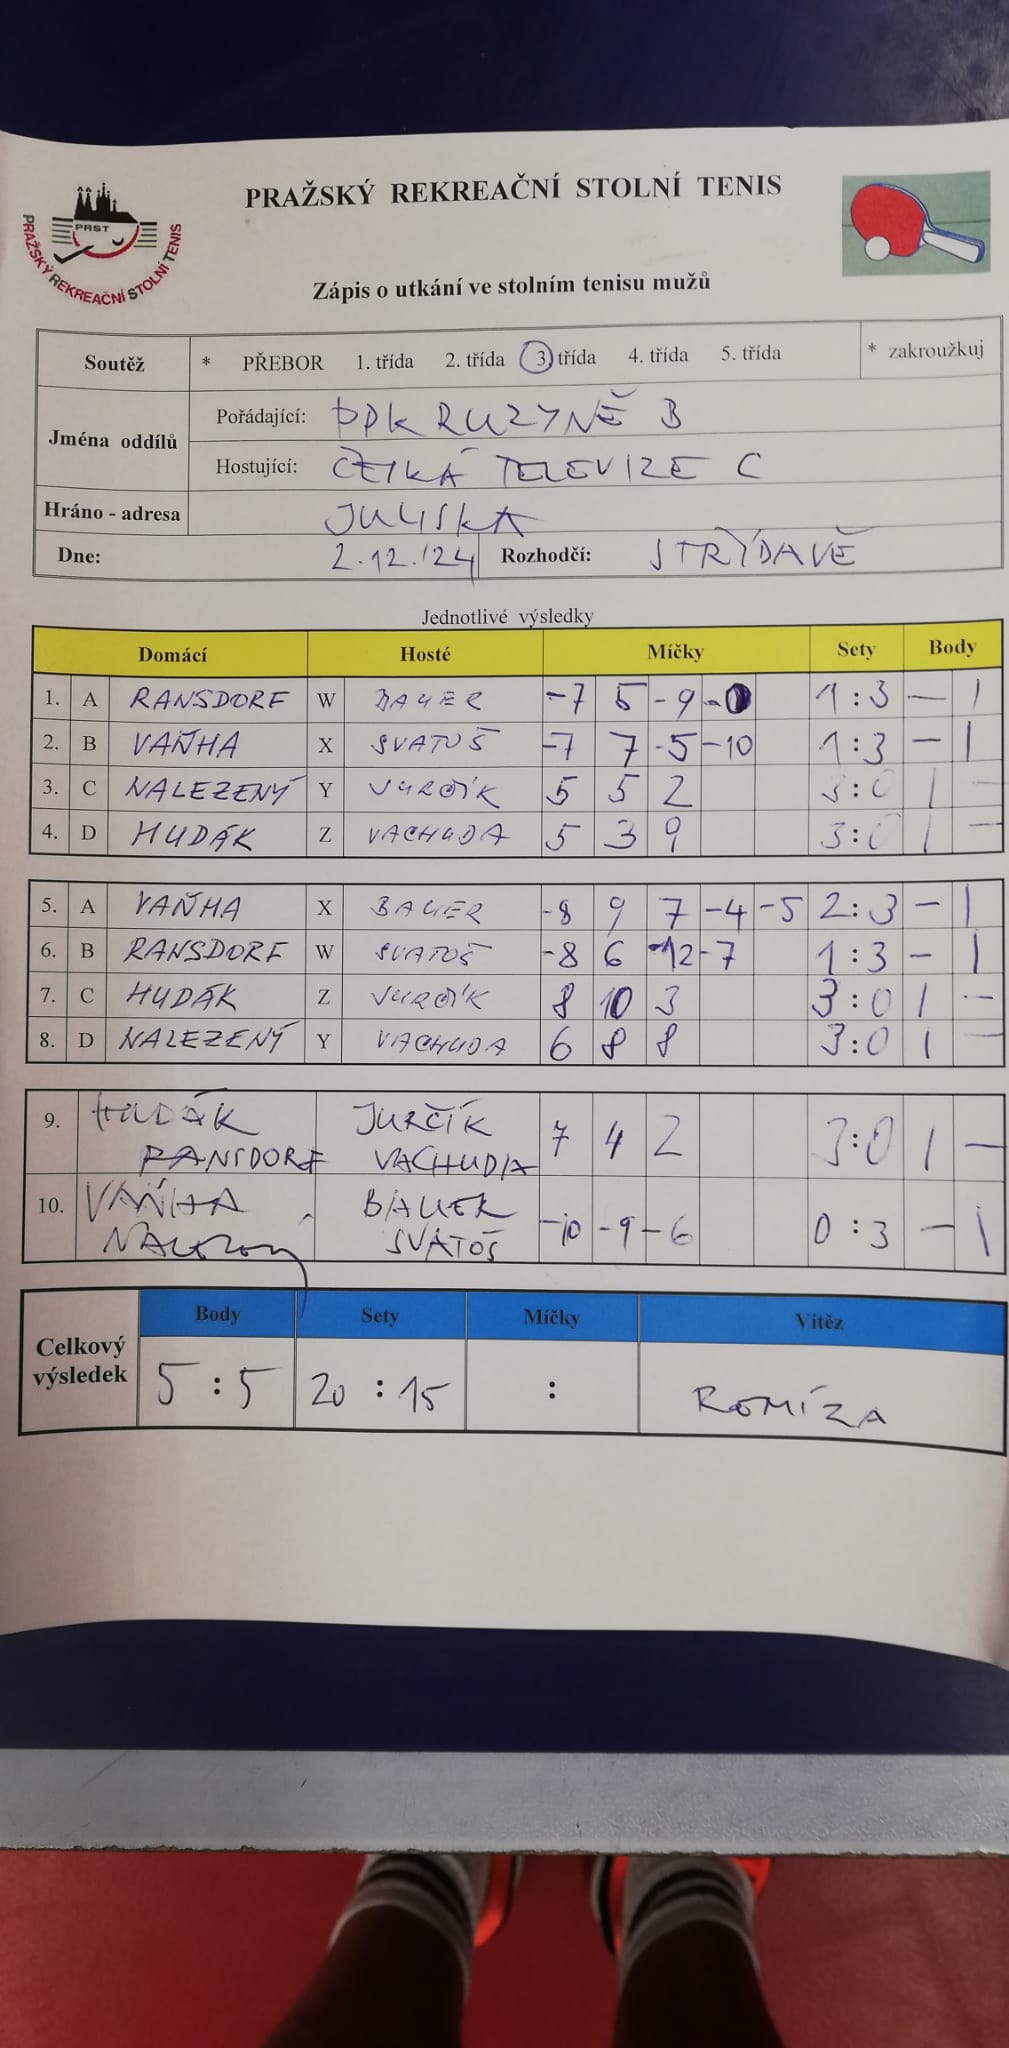 PRAŽSKÝ REKREAČNÍ STOLNÍ TENIS
PRST
PRAŽSKÝ REKREAČNÍ STOLNÍ TENIS
Zápis o utkání ve stolním tenisu mužů
Soutěž * PŘEBOR 1. třída 2. třída 3 třída 4. třída 5. třída * zakroužkuj
Jména oddílů
Pořádající: DDK RUZYNĚ B
Hostující: ČESKÁ TELEVIZE C
Hráno - adresa JULISKA
Dne: 2.12.'24 Rozhodčí: STŘÍDAVĚ
Jednotlivé výsledky
Domácí Hosté Míčky Sety Body
1. A RANSDORF W BAUER -7 5 -9 -0 1:3 — 1
2. B VAŇHA X SVATOŠ -7 7 -5 -10 1:3 — 1
3. C NALEZENÝ Y JURČÍK 5 5 2 3:0 1 —
4. D HUDÁK Z VACHUDA 5 3 9 3:0 1 —
5. A VAŇHA X BAUER -8 9 7 -4 -5 2:3 — 1
6. B RANSDORF W SVATOŠ -8 6 -12 -7 1:3 — 1
7. C HUDÁK Z JURČÍK 8 10 3 3:0 1 —
8. D NALEZENÝ Y VACHUDA 6 8 8 3:0 1 —
9. HUDÁK JURČÍK 7 4 2 3:0 1 —
RANSDORF VACHUDA
10. VAŇHA BAUER -10 -9 -6 0:3 — 1
SVATOŠ
Celkový výsledek
Body Sety Míčky Vítěz
5:5 20:15 : REMÍZA